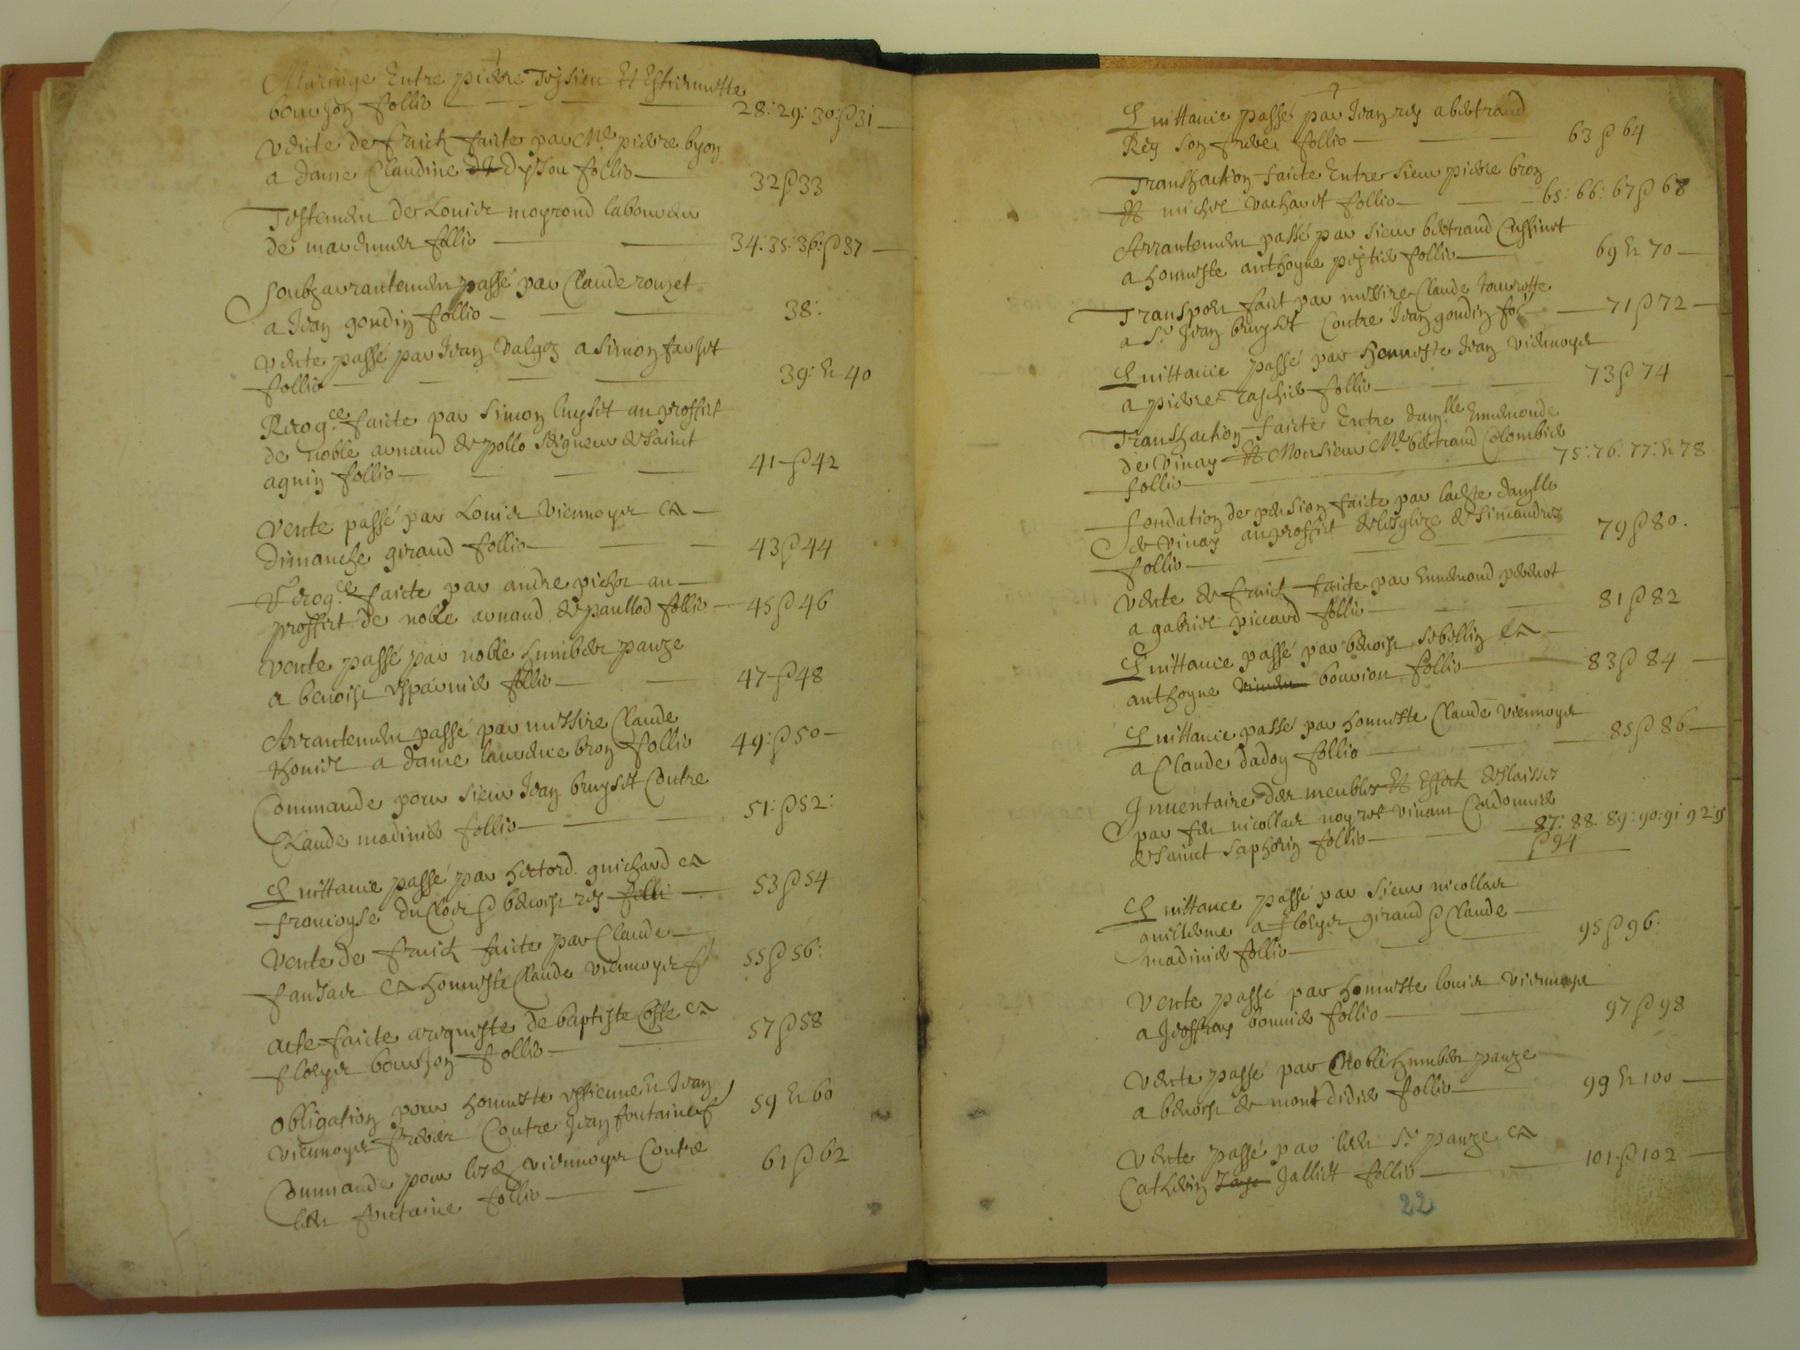 Mariage Entre pierre Teysieu Et Estiennette
bourjon follio 28: 29: 30: & 31
vente de fruictz faicte par Me pierre byon
a dame Claudine dyzou follio 32 & 33
Testement de Louis moyrond laboureur
de marennes follio 34: 35: 36: & 37
Soubzarrantement passé par Claude rouzet
a Jean goudin follio 38:
vente passé par Jean valgoz a simon farget
follio 39: Et 40
Recogce faicte par simon buyset au proffict
de noble arnaud de pollo seigneur de sainct
agnin follio 41 & 42
vente passé par Louis viennoys Et
dimanche giraud follio 43 & 44
Recogce faicte par andre pichot au
proffict de noble arnaud de paullod follio 45 & 46
vente passé par noble humbert pauze
a benoist esparnier follio 47 & 48
Arrantement passé par messire Claude
thoniel a dame laurence bron follio 49: & 50
Commande pour sieur Jean bruyset Contre
Claude madinier follio 51: & 52:
Quittance passé par hectord guichard Et
francoyse du Clos & benoist rey 53 & 54
Vente de fruictz faicte par Claude
fanjas Et honneste Claude viennoys f 55 & 56:
acte faicte a requeste de baptiste Coste Et
floeys bourjon follio 57 & 58
obligation pour honneste estienne Et Jean
viennoys freres Contre Jean fontaine f 59 Et 60
Commande pour lesd viennoys Contre
led fontaine follio 61 & 62
Quittance passé par Jean rey a bertrand
Rey son frere follio 63 & 64
Transhaction faicte Entre sieur pierre bron
Et michel vachard follio 65: 66: 67 & 68
Arrantement passé par sieur bertrand Cuffinet
a honneste anthoyne pestier follio 69 Et 70
Transport faict par messire Claude tourrotte
a Sr Jean bruyset Contre Jean goudin fol 71 & 72
Quittance passé par honneste Jean viennoys
a pierre taschier follio 73 & 74
Transhaction faicte Entre damlle Ennemonde
de vinay Et Monsieur Me bertrand Colombier
follio 75: 76: 77: Et 78
fondation de pension faicte par ladite damlle
de vinay au proffict de lesglize de simandres
follio 79 & 80.
vente de fruictz faicte par Ennemond perenot
a gabriel piccard follio 81 & 82
Quittance passé par benoist sebellin Et
anthoyne bourion follio 83 & 84
Quittance passé par honneste Claude viennoys
a Claude dadoy follio 85 & 86
Inventaire des meubles Et Effectz delaissés
par feu nicollas noyret vivant Cordonnier
de sainct saphorin follio 87: 88: 89: 90: 91 92 93
& 94
Quittance passé par sieur nicollas
anilerme a floeys giraud & Claude
madinier follio 95 & 96:
vente passé par honneste louis viennoys
a Jeoffray bonnier follio 97 & 98
vente passé par Noble humbert pauze
a benoist de mont didier follio 99 Et 100
vente passé par led Sr pauze Et
Catherin Jalliet follio 101 & 102
22